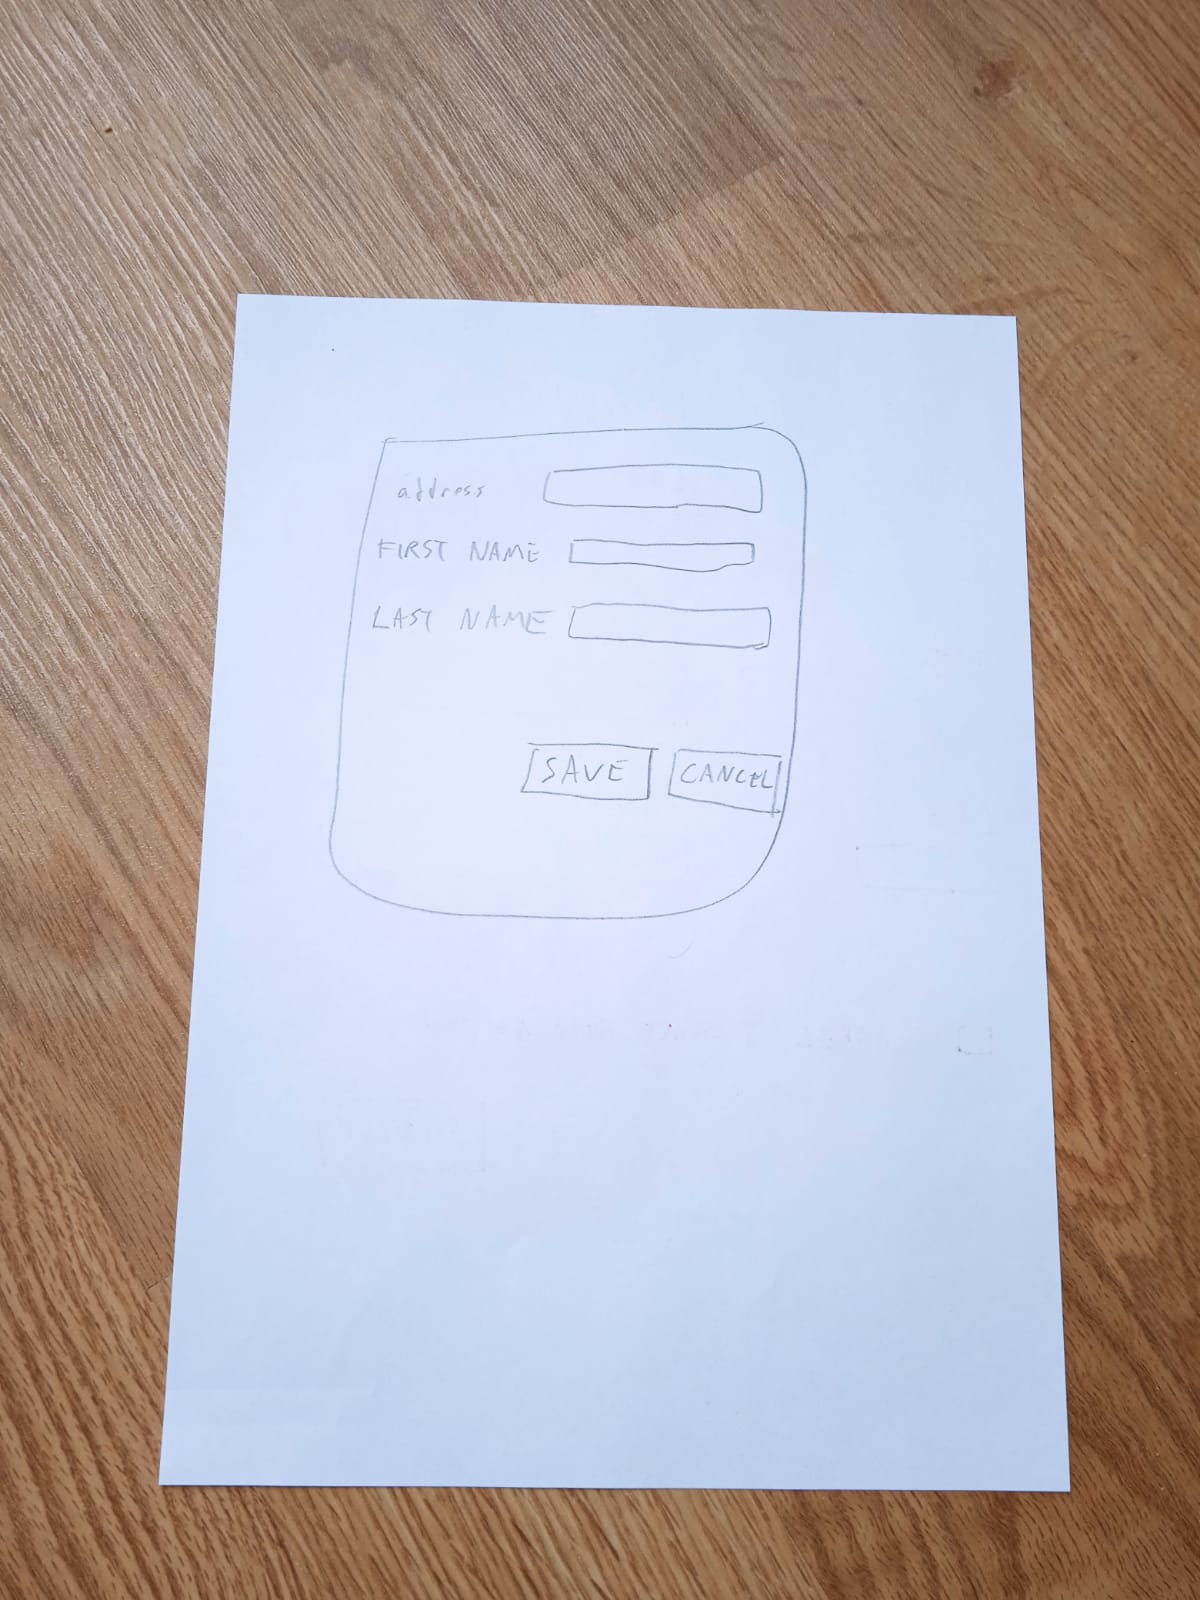 address
FIRST NAME
LAST NAME
SAVE CANCEL